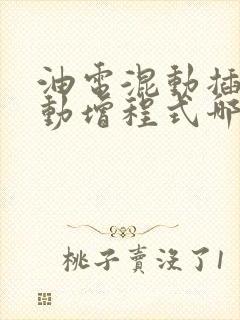 油电混動插
動增程式哪
桃子賣沒了1